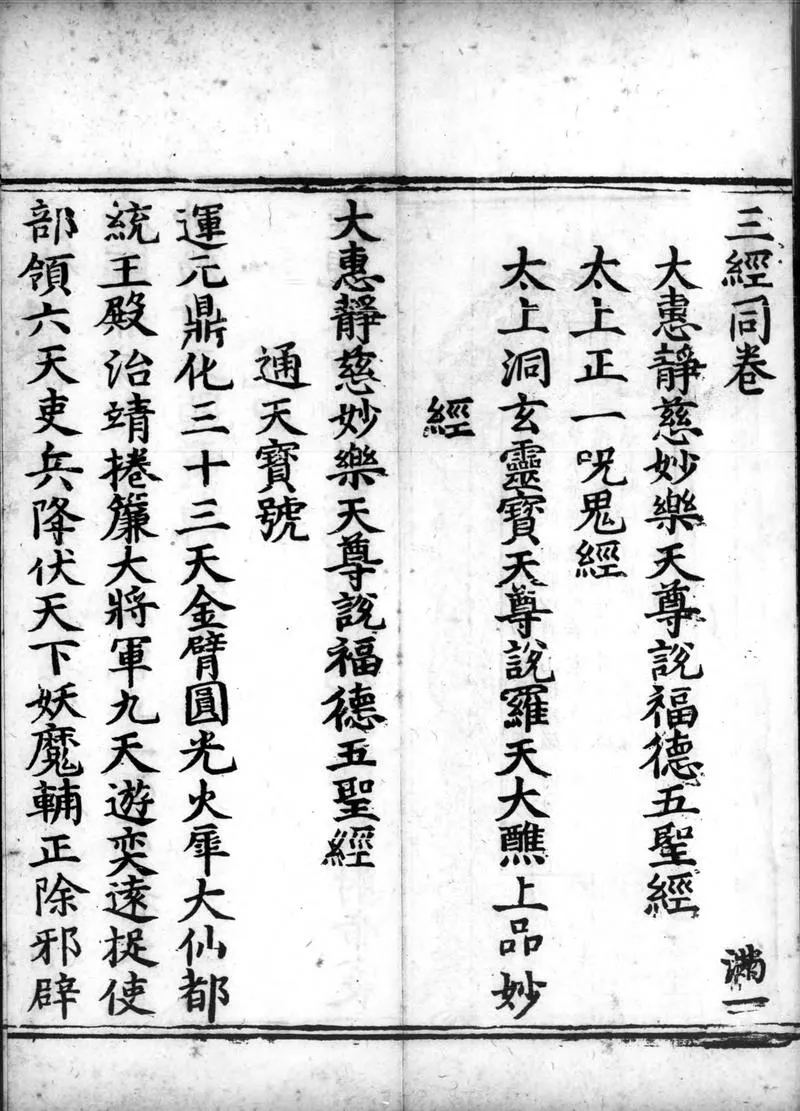 三經同卷 滿一
大惠靜慈妙樂天尊說福德五聖經
太上正一呪鬼經
太上洞玄靈寶天尊說羅天大醮上品妙
經
大惠靜慈妙樂天尊說福德五聖經
通天寶號
運元鼎化三十三天金臂圓光火犀大仙都
統王殿治靖捲簾大將軍九天遊奕遠捉使
部領六天吏兵降伏天下妖魔輔正除邪辟